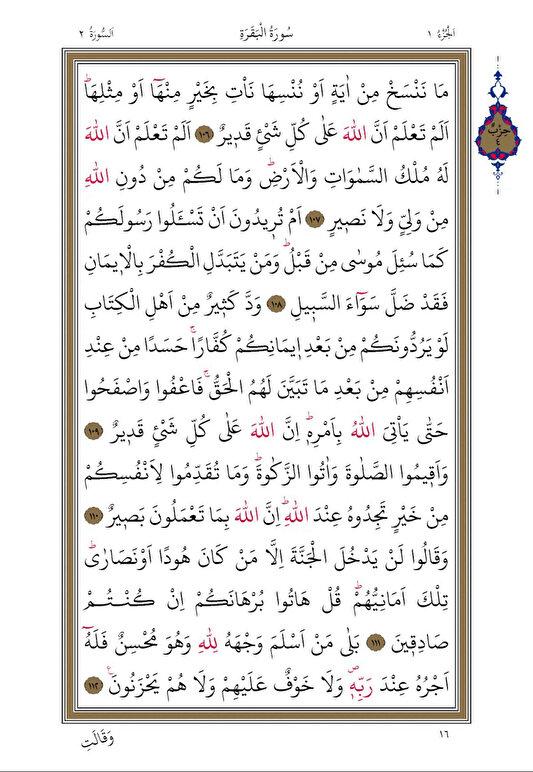 اَلْجُزْءُ ١ سُورَةُ الْبَقَرَةِ اَلسُّورَةُ ٢
مَا نَنْسَخْ مِنْ اٰيَةٍ اَوْ نُنْسِهَا نَأْتِ بِخَيْرٍ مِنْهَٓا اَوْ مِثْلِهَاۜ
اَلَمْ تَعْلَمْ اَنَّ اللّٰهَ عَلٰى كُلِّ شَيْءٍ قَد۪يرٌ ﴿١٠٦﴾ اَلَمْ تَعْلَمْ اَنَّ اللّٰهَ
لَهُ مُلْكُ السَّمٰوَاتِ وَالْاَرْضِۜ وَمَا لَكُمْ مِنْ دُونِ اللّٰهِ
مِنْ وَلِيٍّ وَلَا نَص۪يرٍ ﴿١٠٧﴾ اَمْ تُر۪يدُونَ اَنْ تَسْـَٔلُوا رَسُولَكُمْ
كَمَا سُئِلَ مُوسٰى مِنْ قَبْلُۜ وَمَنْ يَتَبَدَّلِ الْكُفْرَ بِالْا۪يمَانِ
فَقَدْ ضَلَّ سَوَٓاءَ السَّب۪يلِ ﴿١٠٨﴾ وَدَّ كَث۪يرٌ مِنْ اَهْلِ الْكِتَابِ
لَوْ يَرُدُّونَكُمْ مِنْ بَعْدِ ا۪يمَانِكُمْ كُفَّارًاۚ حَسَدًا مِنْ عِنْدِ
اَنْفُسِهِمْ مِنْ بَعْدِ مَا تَبَيَّنَ لَهُمُ الْحَقُّۚ فَاعْفُوا وَاصْفَحُوا
حَتّٰى يَأْتِيَ اللّٰهُ بِاَمْرِه۪ۜ اِنَّ اللّٰهَ عَلٰى كُلِّ شَيْءٍ قَد۪يرٌ ﴿١٠٩﴾
وَاَق۪يمُوا الصَّلٰوةَ وَاٰتُوا الزَّكٰوةَۜ وَمَا تُقَدِّمُوا لِاَنْفُسِكُمْ
مِنْ خَيْرٍ تَجِدُوهُ عِنْدَ اللّٰهِۜ اِنَّ اللّٰهَ بِمَا تَعْمَلُونَ بَص۪يرٌ ﴿١١٠﴾
وَقَالُوا لَنْ يَدْخُلَ الْجَنَّةَ اِلَّا مَنْ كَانَ هُودًا اَوْ نَصَارٰىۜ
تِلْكَ اَمَانِيُّهُمْۜ قُلْ هَاتُوا بُرْهَانَكُمْ اِنْ كُنْتُمْ
صَادِق۪ينَ ﴿١١١﴾ بَلٰى مَنْ اَسْلَمَ وَجْهَهُ لِلّٰهِ وَهُوَ مُحْسِنٌ فَلَهُٓ
اَجْرُهُ عِنْدَ رَبِّه۪ۖ وَلَا خَوْفٌ عَلَيْهِمْ وَلَا هُمْ يَحْزَنُونَ۟ ﴿١١٢﴾
حِزْبٌ
٤
١٦
وَقَالَتِ